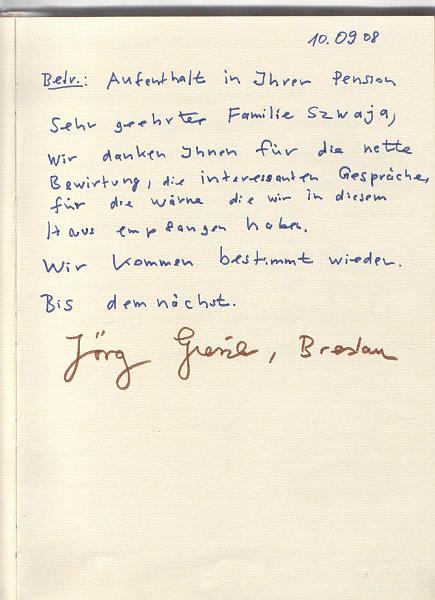 10.09 08
Betr.: Aufenthalt in Ihrer Pension
Sehr geehrter Familie Szwaja,
Wir danken Ihnen für die nette
Bewirtung, die interessanten Gespräche,
für die wärme die wir in diesem
Haus empfangen haben.
Wir kommen bestimmt wieder.
Bis demnächst.
Jörg , Breslau